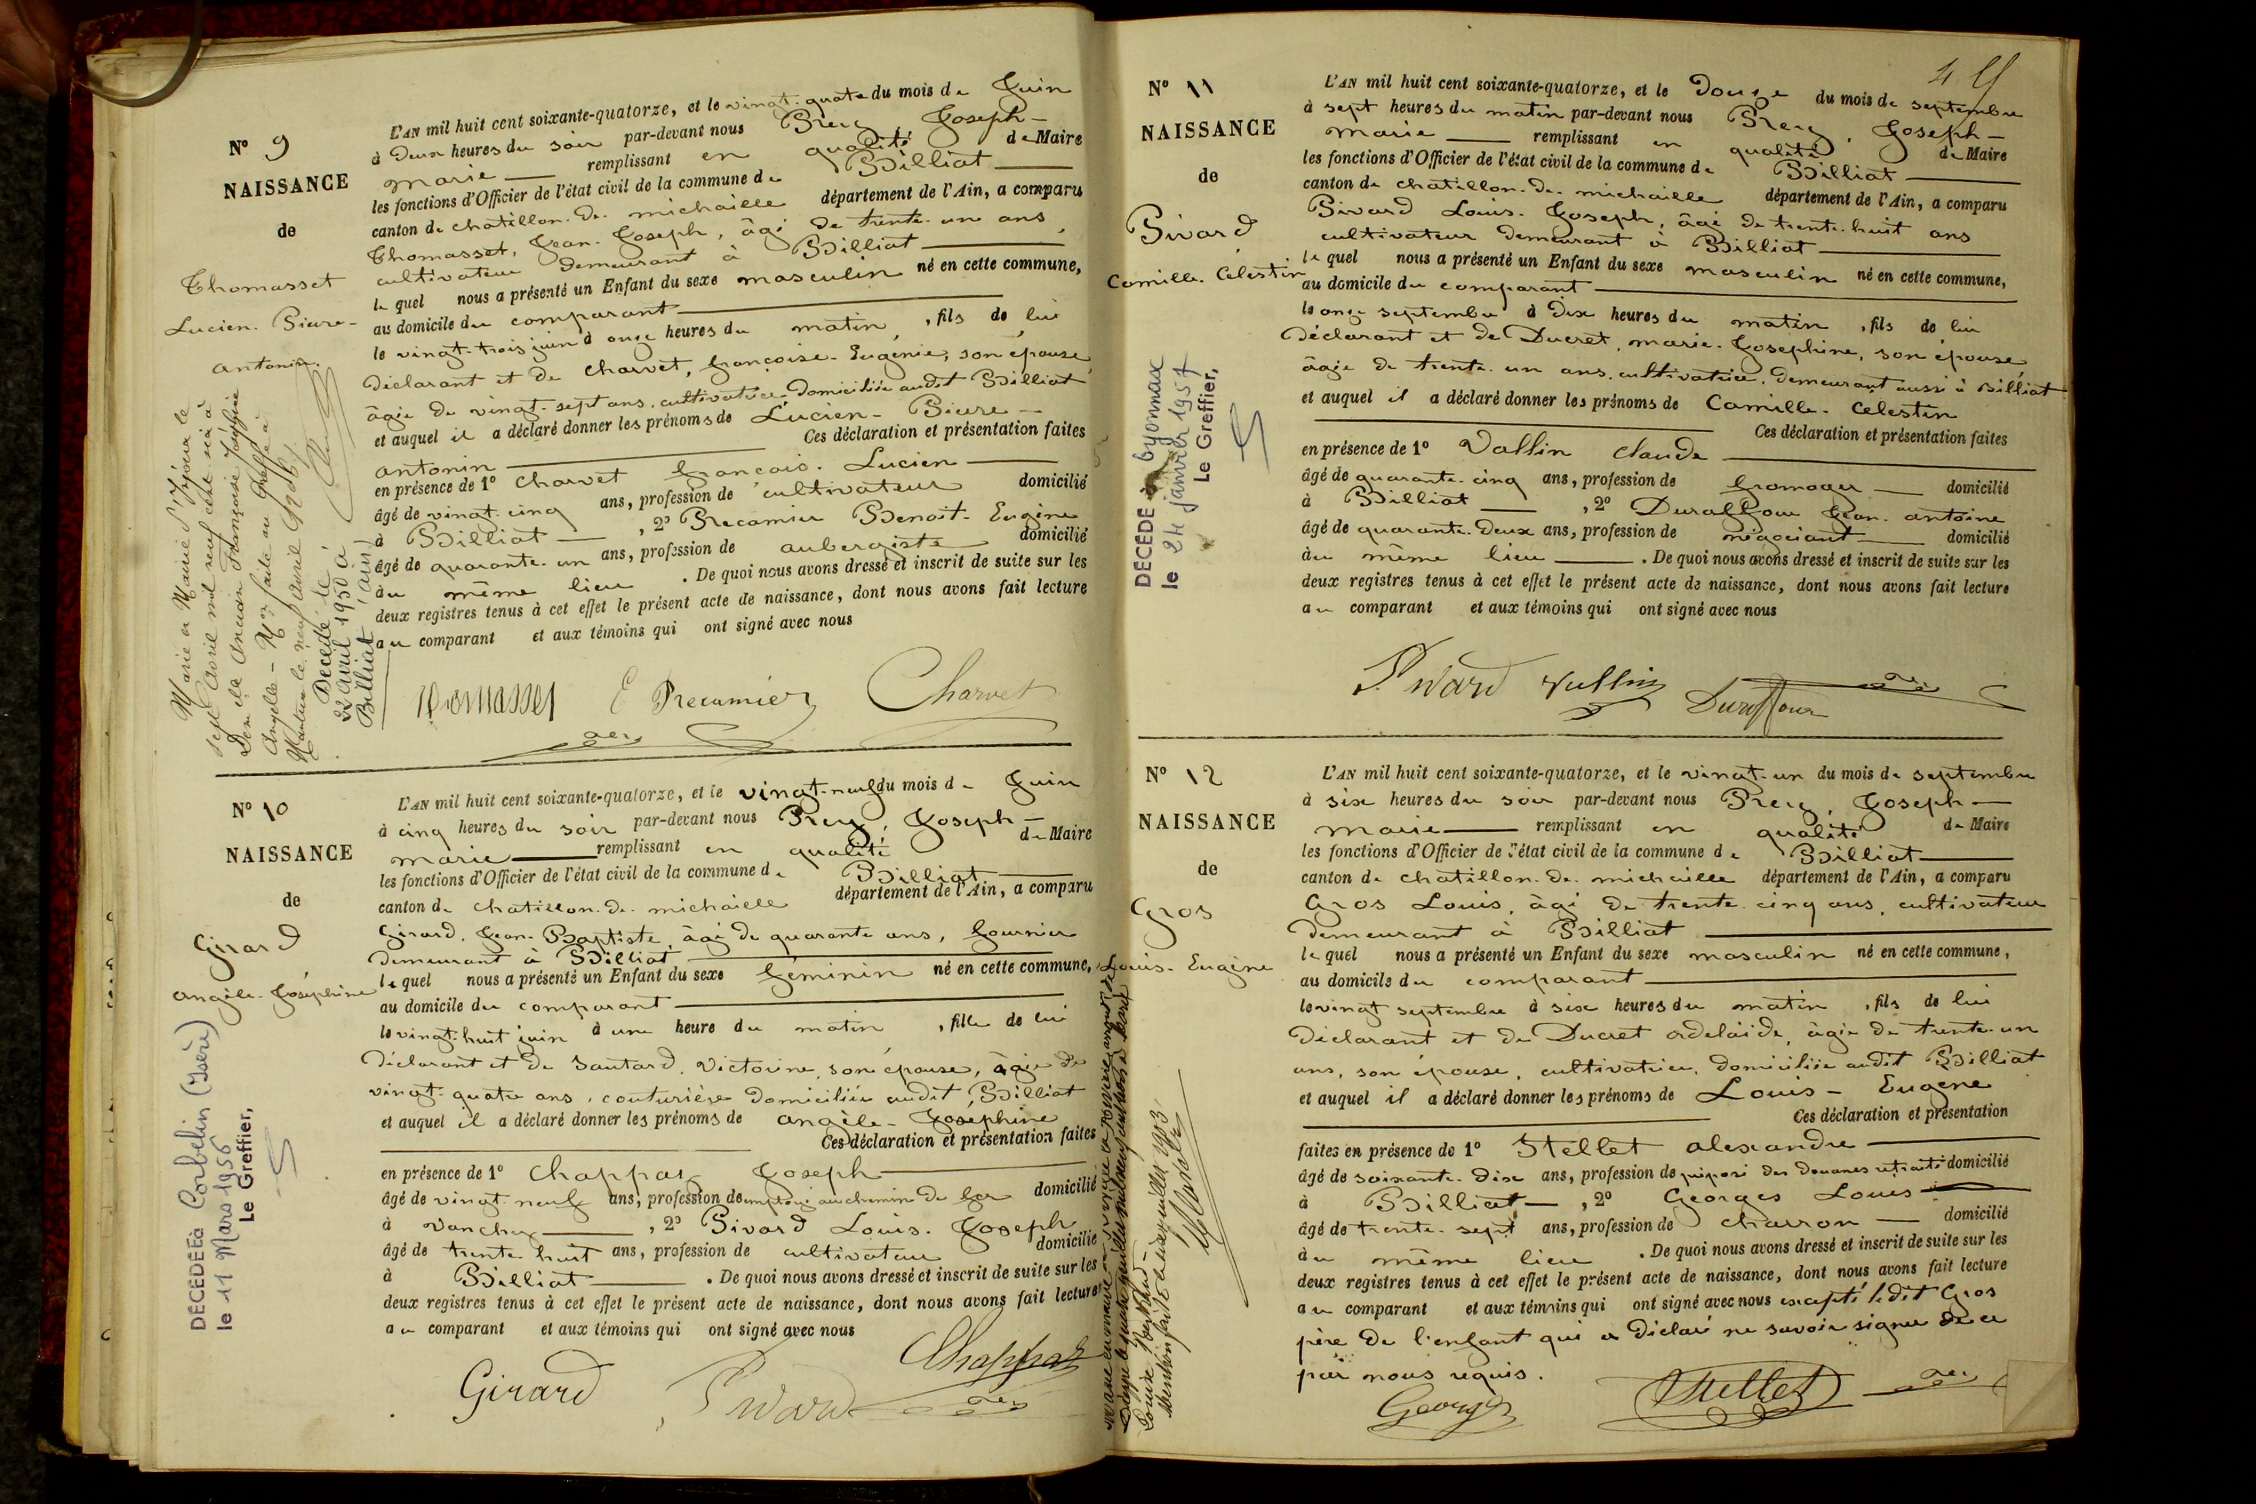 N° 9
NAISSANCE
de
Thomasset
Lucien-Pierre-
antonin.
L'AN mil huit cent soixante-quatorze, et le vingt-quatre du mois de Juin
à Deux heures du soir par-devant nous Prery, Joseph-
marie — remplissant en qualité de Maire
les fonctions d'Officier de l'état civil de la commune de Billiat
canton de chatillon-de-michaille département de l'Ain, a comparu
Thomasset, Jean-Joseph, âgé de trente-un ans,
cultivateur demeurant à Billiat
lequel nous a présenté un Enfant du sexe masculin né en cette commune,
au domicile du comparant
le vingt-trois juin à onze heures du matin, fils de lui
Déclarant et de Charvet, françoise-Eugénie, son épouse
âgée de vingt-sept ans, cultivatrice domiciliée audit Billiat
et auquel il a déclaré donner les prénoms de Lucien-Pierre-
Ces déclaration et présentation faites
antonin
en présence de 1° Charvet françois-Lucien
âgé de vingt-cinq ans, profession de cultivateur domicilié
à Billiat, 2° Recamier Benoit-Eugène
âgé de quarante-un ans, profession de aubergiste domicilié
au même lieu. De quoi nous avons dressé et inscrit de suite sur les
deux registres tenus à cet effet le présent acte de naissance, dont nous avons fait lecture
au comparant et aux témoins qui ont signé avec nous
Thomasset E Recamier Charvet
Marié à la Mairie d'
sept avril mil neuf cent
Françoise Joséphine
Angelle - faite au Greffe à
Nantua le neuf avril
Décédé le
22 avril 1950 à
Billiat (Ain)
N° 10
NAISSANCE
de
Girard
angèle-Joséphine
L'AN mil huit cent soixante-quatorze, et le vingt-neuf du mois de Juin
à cinq heures du soir par-devant nous Prery, Joseph-
marie — remplissant en qualité de Maire
les fonctions d'Officier de l'état civil de la commune de Billiat
canton de chatillon-de-michaille département de l'Ain, a comparu
Girard, Jean-Baptiste, âgé de quarante ans, fournier
demeurant à Billiat
lequel nous a présenté un Enfant du sexe féminin né en cette commune,
au domicile du comparant
le vingt-huit juin à une heure du matin, fille de lui
Déclarant et de Sautard, Victorine, son épouse, âgée de
vingt-quatre ans, couturière domiciliée audit Billiat
et auquel il a déclaré donner les prénoms de angèle-Joséphine
Ces déclaration et présentation faites
en présence de 1° Chappaz Joseph
âgé de vingt-neuf ans, profession de employé au chemin de fer domicilié
à Vanchy, 2° Pivard Louis-Joseph
âgé de trente-huit ans, profession de cultivateur domicilié
à Billiat. De quoi nous avons dressé et inscrit de suite sur les
deux registres tenus à cet effet le présent acte de naissance, dont nous avons fait lecture
au comparant et aux témoins qui ont signé avec nous
Chappaz
Girard Pivard
DÉCÉDÉE à Corbelin (Isère)
le 11 Mars 1956
Le Greffier,
N° 11
NAISSANCE
de
Pivard
Camille-Célestin
L'AN mil huit cent soixante-quatorze, et le Douze du mois de septembre
à sept heures du matin par-devant nous Prery, Joseph-
marie — remplissant en qualité de Maire
les fonctions d'Officier de l'état civil de la commune de Billiat
canton de chatillon-de-michaille département de l'Ain, a comparu
Pivard Louis-Joseph, âgé de trente-huit ans
cultivateur demeurant à Billiat
lequel nous a présenté un Enfant du sexe masculin né en cette commune,
au domicile du comparant
le onze septembre à Dix heures du matin, fils de lui
Déclarant et de Ducret, marie-Josephine, son épouse,
âgée de trente-un ans, cultivatrice, demeurant aussi à Billiat
et auquel il a déclaré donner les prénoms de Camille-Célestin
Ces déclaration et présentation faites
en présence de 1° Vallin claude
âgé de quarante-cinq ans, profession de fromager domicilié
à Billiat, 2° Duraffour Jean-antoine
âgé de quarante-Deux ans, profession de négociant domicilié
au même lieu. De quoi nous avons dressé et inscrit de suite sur les
deux registres tenus à cet effet le présent acte de naissance, dont nous avons fait lecture
au comparant et aux témoins qui ont signé avec nous
Pivard Vullin
Duraffour
DÉCÉDÉ à Oyonnax
le 24 janvier 1957
Le Greffier,
N° 12
NAISSANCE
de
Gros
Louis-Eugène
L'AN mil huit cent soixante-quatorze, et le vingt-un du mois de septembre
à six heures du soir par-devant nous Prery, Joseph-
marie — remplissant en qualité de Maire
les fonctions d'Officier de l'état civil de la commune de Billiat
canton de chatillon-de-michaille département de l'Ain, a comparu
Gros Louis, âgé de trente-cinq ans, cultivateur
demeurant à Billiat
lequel nous a présenté un Enfant du sexe masculin né en cette commune,
au domicile du comparant
le vingt septembre à six heures du matin, fils de lui
Déclarant et de Ducret adelaïde, âgée de trente-un
ans, son épouse, cultivatrice, domiciliée audit Billiat
et auquel il a déclaré donner les prénoms de Louis-Eugène
Ces déclaration et présentation
faites en présence de 1° Stellet alexandre
âgé de soixante-dix ans, profession de préposé des douanes retraité domicilié
à Billiat, 2° Georges Louis
âgé de trente-sept ans, profession de charron domicilié
au même lieu. De quoi nous avons dressé et inscrit de suite sur les
deux registres tenus à cet effet le présent acte de naissance, dont nous avons fait lecture
au comparant et aux témoins qui ont signé avec nous excepté ledit Gros
père de l'enfant qui a déclaré ne savoir signer de ce
par nous requis.
Georges Stellet